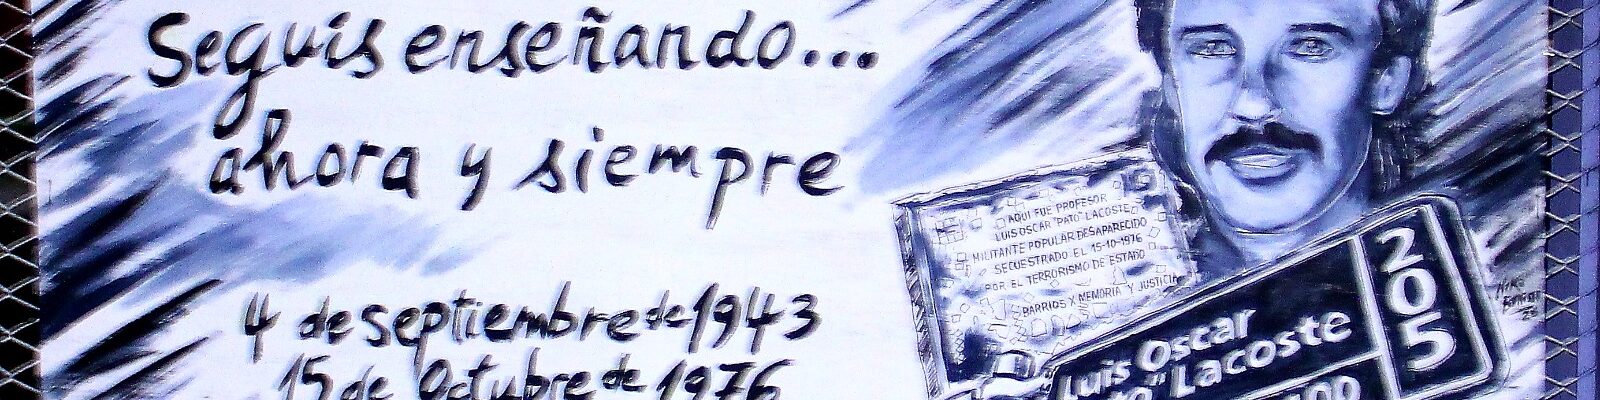 Seguis enseñando...
ahora y siempre
4 de septiembre de 1943
15 de Octubre de 1976
AQUI FUE PROFESOR
LUIS OSCAR "PATO" LACOSTE
MILITANTE POPULAR DESAPARECIDO
SECUESTRADO EL 15-10-1976
POR EL TERRORISMO DE ESTADO
BARRIOS X MEMORIA Y JUSTICIA
Luis Oscar
"Lacoste
205